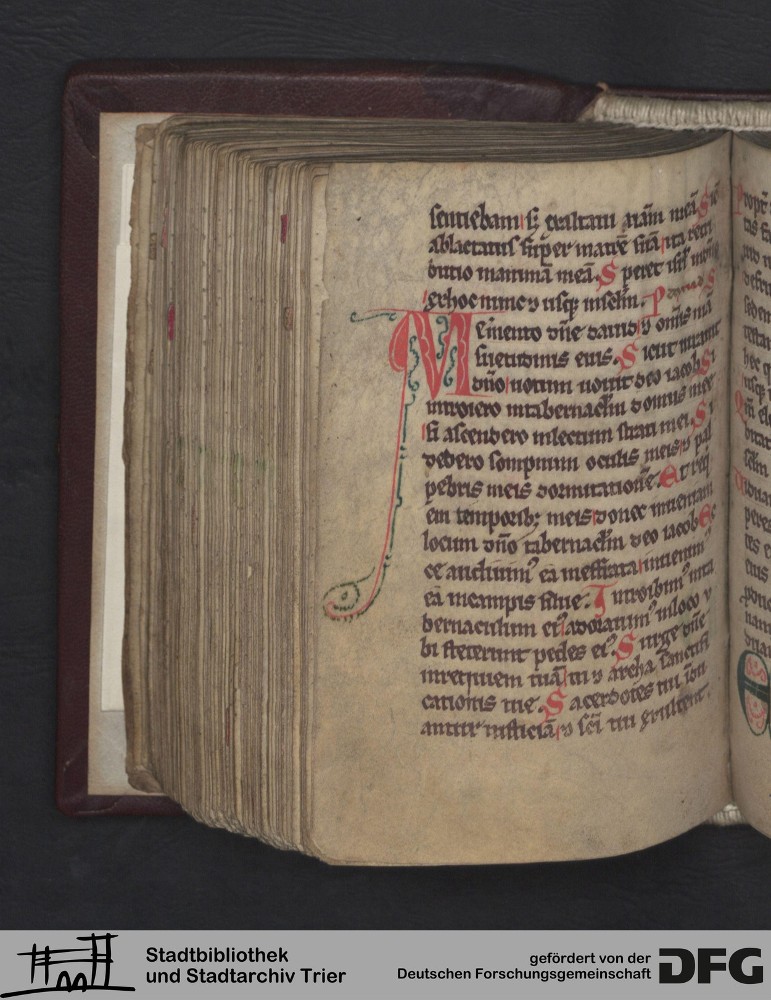 sentiebam s; exaltavi aīam meā Sic̄
ablactatus super matrē suā ita retri
butio in animā meā. Speret isrl̄ in dn̄o
ex hoc nunc ⁊ usq; in sclm̄.
Memento dn̄e david ⁊ om̄is mā
suetudinis eius. Sicut iuravit
dn̄o votum vovit deo iacob Si
introiero in tabernaclm̄ domus mee
si ascendero in lectum strati mei. Si
dedero sompnum oculis meis ⁊ pal
pebris meis dormitationē. Et req̄
em temporib; meis donec inveniam
locum dn̄o tabernaclm̄ deo iacob Ec
ce audivim᾽ eā in effrata invenim᾽
eā in campis silve. Introibim᾽ in ta
bernaculum ei᾽ adorabim᾽ in loco u
bi steterunt pedes ei᾽. Surge dn̄e
in requiem tuā tu ⁊ archa sanctifi
cationis tue. Sacerdotes tui indu
antur iusticiā ⁊ sc̄i tui exultent.
Stadtbibliothek
und Stadtarchiv Trier
gefördert von der
Deutschen Forschungsgemeinschaft
DFG